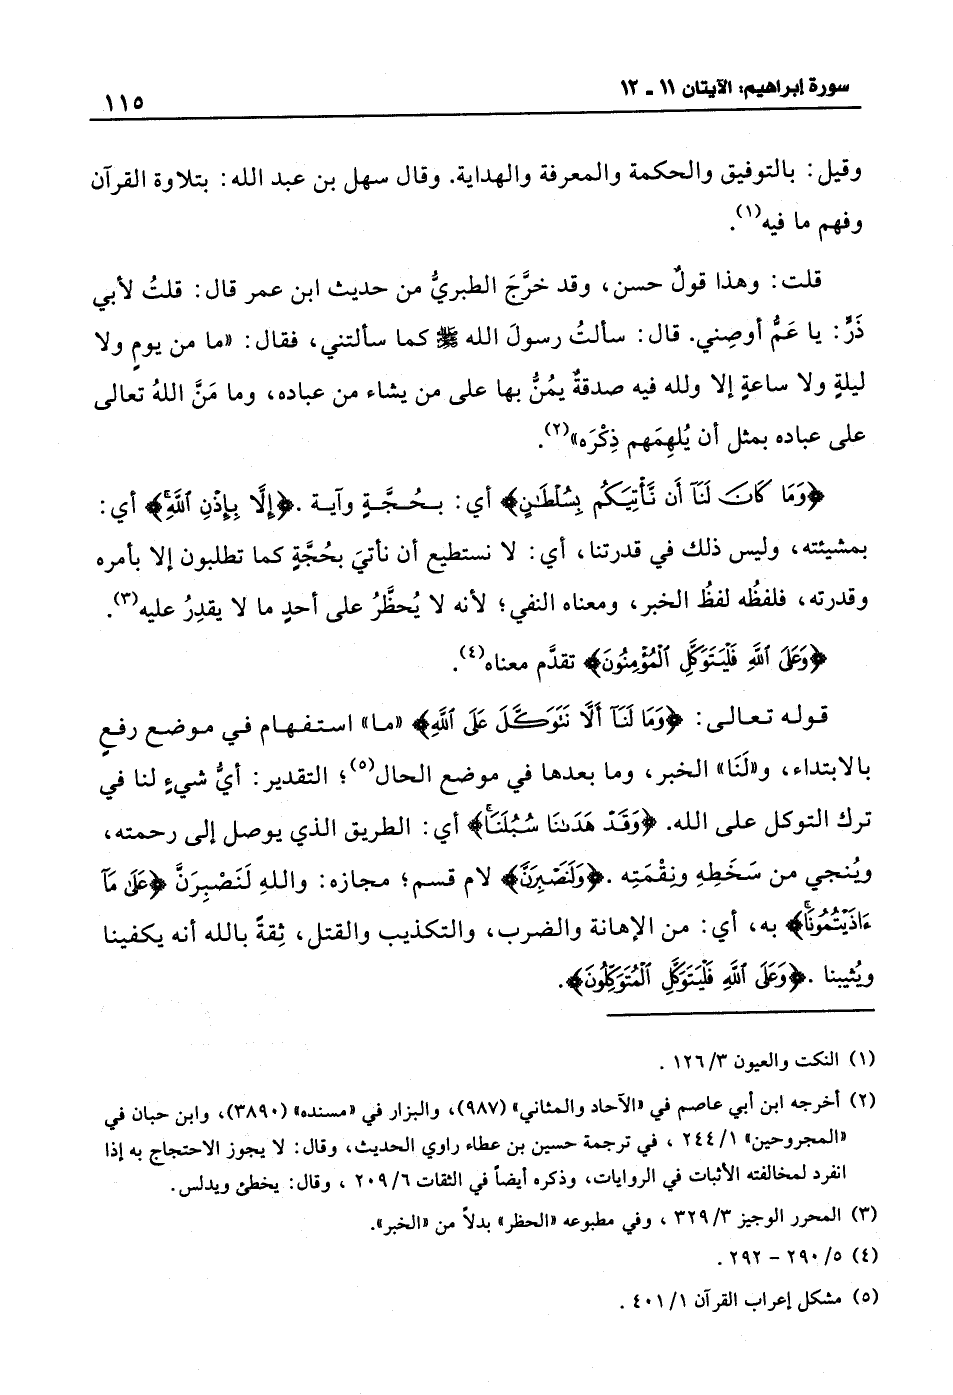 سورة إبراهيم: الآيتان ١١ ـ ١٢
١١٥
وقيل: بالتوفيق والحكمة والمعرفة والهداية. وقال سهل بن عبد الله: بتلاوة القرآن
وفهم ما فيه(١).
قلت: وهذا قولٌ حسن، وقد خرَّجَ الطبريُّ من حديث ابن عمر قال: قلتُ لأبي
ذَرٍّ: يا عَمُّ أوصِني. قال: سألتُ رسولَ الله ﷺ كما سألتني، فقال: «ما من يومٍ ولا
ليلةٍ ولا ساعةٍ إلا ولله فيه صدقةٌ يمُنُّ بها على من يشاء من عباده، وما مَنَّ اللهُ تعالى
على عباده بمثل أن يُلهِمَهم ذِكْرَه»(٢).
﴿وَمَا كَانَ لَنَآ أَن نَّأْتِيَكُم بِسُلْطَٰنٍ﴾ أي: بحُجَّةٍ وآية. ﴿إِلَّا بِإِذْنِ ٱللَّهِۚ﴾ أي:
بمشيئته، وليس ذلك في قدرتنا، أي: لا نستطيع أن نأتيَ بحُجَّةٍ كما تطلبون إلا بأمره
وقدرته، فلفظُه لفظُ الخبر، ومعناه النفي؛ لأنه لا يُحظَّرُ على أحدٍ ما لا يقدِرُ عليه(٣).
﴿وَعَلَى ٱللَّهِ فَلْيَتَوَكَّلِ ٱلْمُؤْمِنُونَ﴾ تقدَّم معناه(٤).
قوله تعالى: ﴿وَمَا لَنَآ أَلَّا نَتَوَكَّلَ عَلَى ٱللَّهِ﴾ «ما» استفهام في موضع رفعٍ
بالابتداء، و«لَنَا» الخبر، وما بعدها في موضع الحال(٥)؛ التقدير: أيُّ شيءٍ لنا في
ترك التوكل على الله. ﴿وَقَدْ هَدَىٰنَا سُبُلَنَاۚ﴾ أي: الطريق الذي يوصل إلى رحمته،
ويُنجي من سَخَطِهِ ونِقْمَتِه. ﴿وَلَنَصْبِرَنَّ﴾ لام قسم؛ مجازه: واللهِ لَنَصْبِرَنَّ ﴿عَلَىٰ مَآ
ءَاذَيْتُمُونَاۚ﴾ به، أي: من الإهانة والضرب، والتكذيب والقتل، ثِقةً بالله أنه يكفينا
ويُثيبنا. ﴿وَعَلَى ٱللَّهِ فَلْيَتَوَكَّلِ ٱلْمُتَوَكِّلُونَ﴾.
(١) النكت والعيون ٣/ ١٢٦ .
(٢) أخرجه ابن أبي عاصم في «الآحاد والمثاني» (٩٨٧)، والبزار في «مسنده» (٣٨٩٠)، وابن حبان في
«المجروحين» ١/ ٢٤٤ ، في ترجمة حسين بن عطاء راوي الحديث، وقال: لا يجوز الاحتجاج به إذا
انفرد لمخالفته الأثبات في الروايات، وذكره أيضاً في الثقات ٦/ ٢٠٩ ، وقال: يخطئ ويدلس.
(٣) المحرر الوجيز ٣/ ٣٢٩ ، وفي مطبوعه «الحظر» بدلاً من «الخبر».
(٤) ٥/ ٢٩٠ - ٢٩٢ .
(٥) مشكل إعراب القرآن ١/ ٤٠١ .